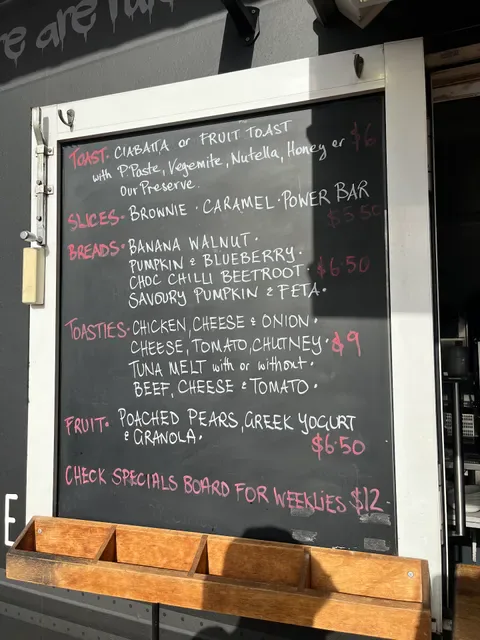 e are
TOAST. CIABATTA or FRUIT TOAST
with P.Paste, Vegemite, Nutella, Honey or $6
Our Preserve.
SLICES. BROWNIE . CARAMEL. POWER BAR
$5.50
BREADS. BANANA WALNUT.
PUMPKIN & BLUEBERRY.
CHOC CHILLI BEETROOT. $6.50
SAVOURY PUMPKIN & FETA.
TOASTIES. CHICKEN, CHEESE & ONION.
CHEESE, TOMATO, CHUTNEY. $9
TUNA MELT with or without.
BEEF, CHEESE & TOMATO.
FRUIT. POACHED PEARS, GREEK YOGURT
& GRANOLA.
$6.50
CHECK SPECIALS BOARD FOR WEEKLIES $12
E